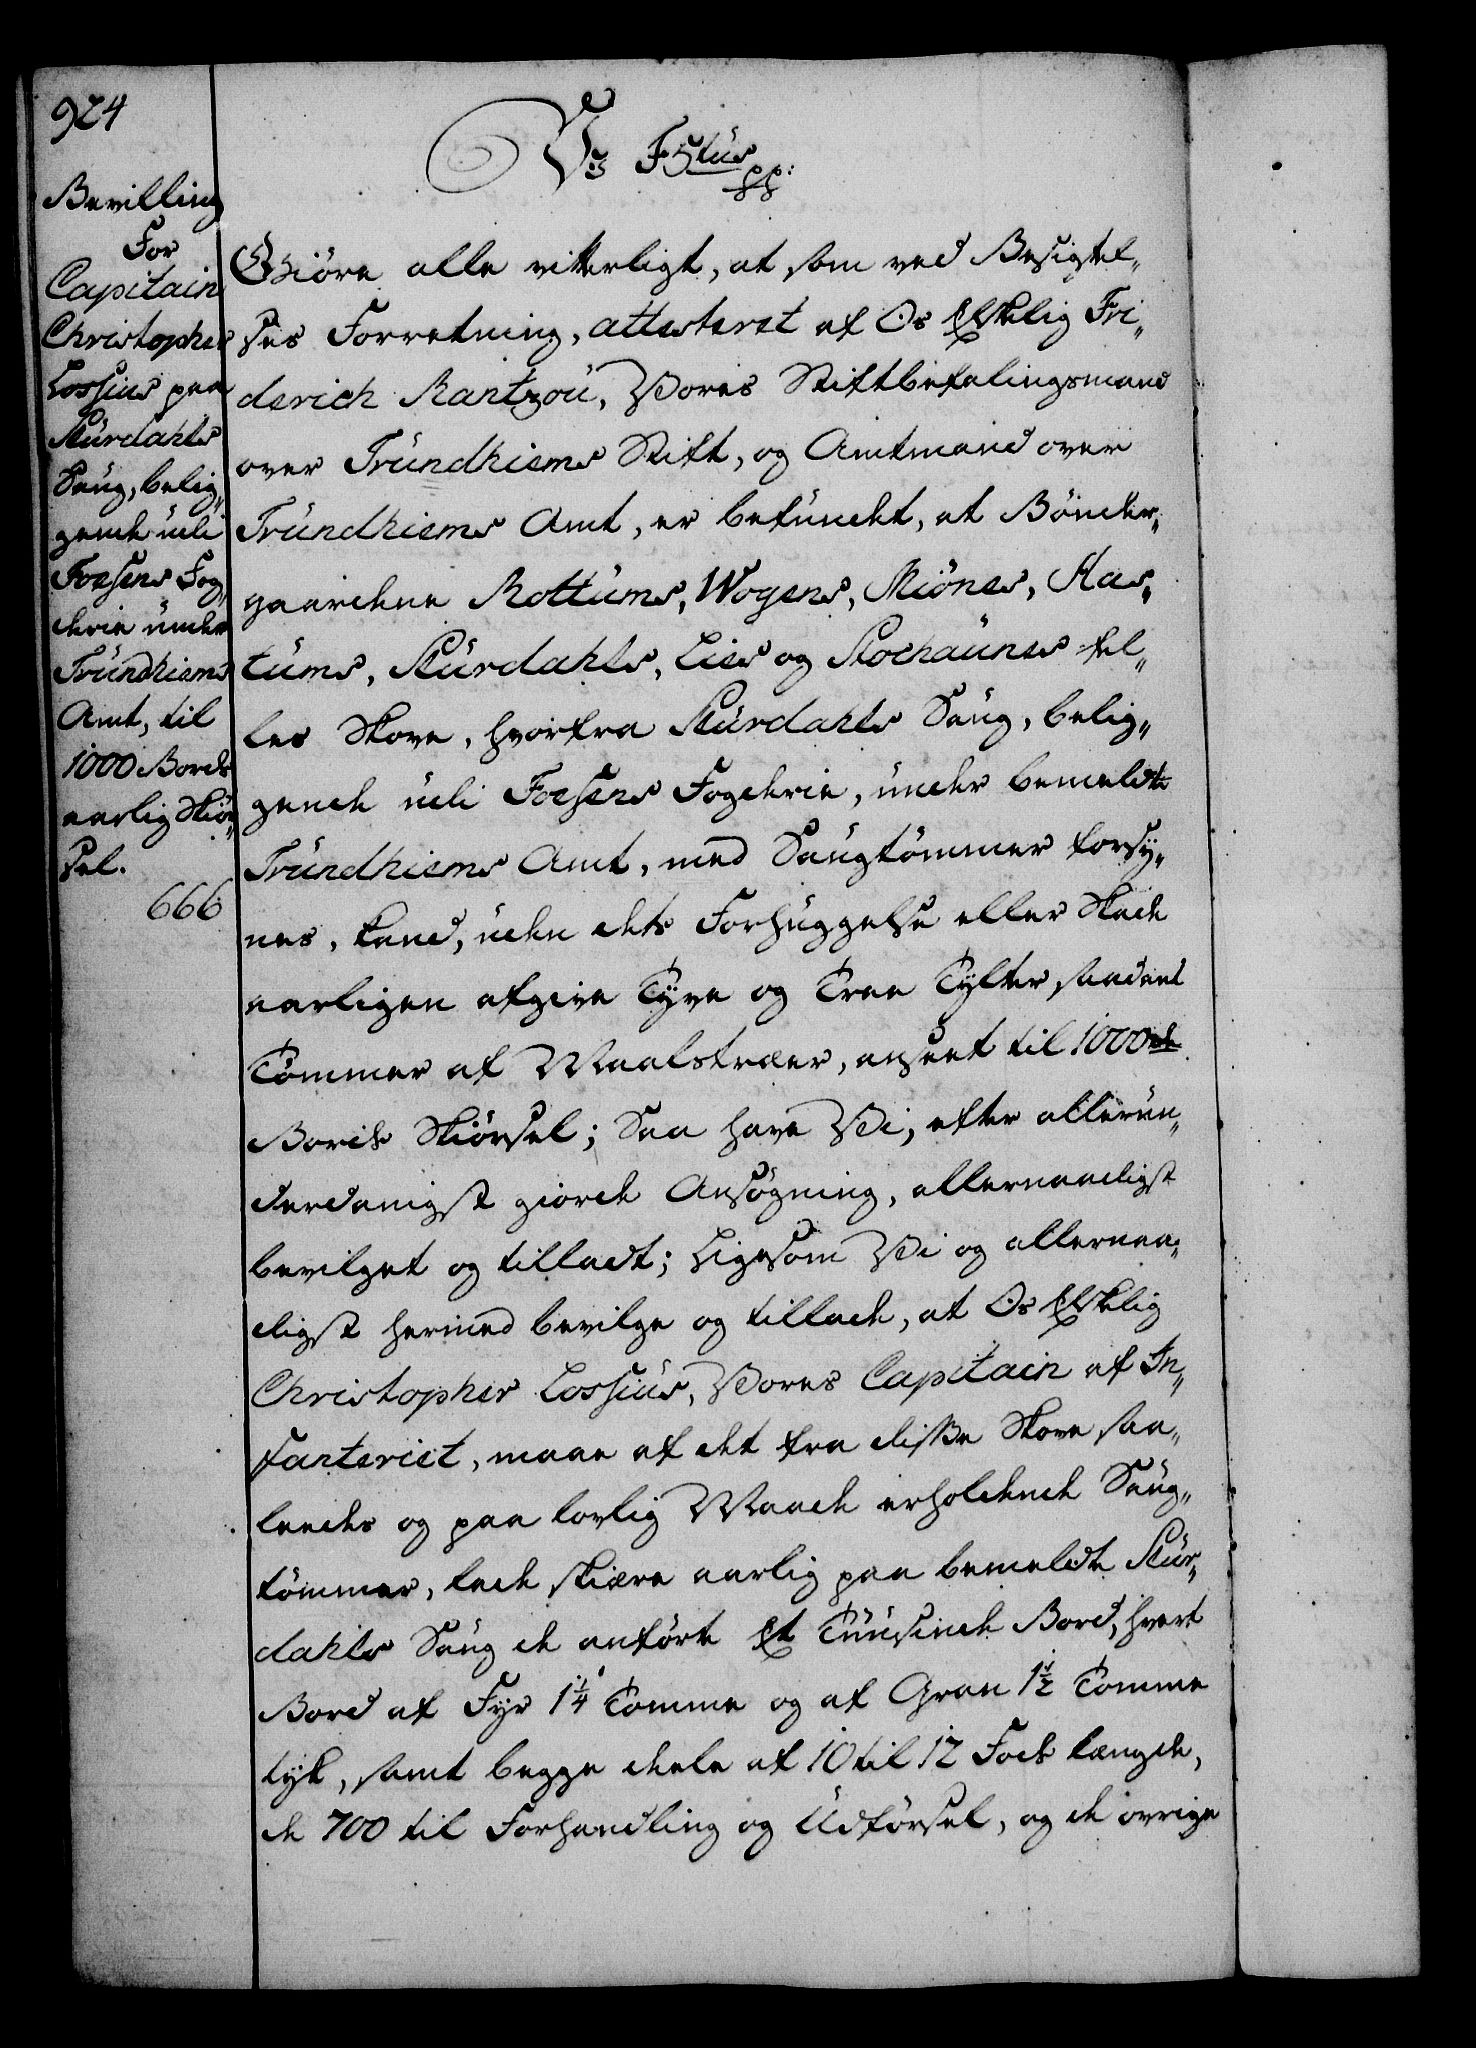 924
Bevilling
For
Capitain
Christopher
Lossius paa
Skurdahls
Saug, belig„
gende udi
Foesens Fog„
derie under
Trundhiems
Amt, til
1000 Bords
aarlig Skiør„
sel.
666
Vi F5tus pp:
Giöre alle vitterligt, at som ved Besigtel„
ses Forretning, attesteret af Os Elskelig Fri„
derich Rantzou, Vores Stiftbefalingsmand
over Trundhiems Stift, og Amtmand over
Trundhiems Amt, er befundet, at Bönder„
gaardene Rottums, Wogens, Skiönes, Has„
tums, Skurdahls, Lies og Stochaunes fel„
les Skove, hvorfra Skurdahls Saug, belig„
gende udi Foesens Fogderie, under bemeldte
Trundhiems Amt, med Saugtömmer forsy„
nes, kand, uden dets Forhuggelse eller Skade
aarligen afgive Tyve og Tree Tylter saadant
Tömmer af Maalstræer, anseet til 1000de
Bords Skiörsel; Saa have Vi, efter allerun„
derdanigst giorde Ansøgning, allernaadigst
bevilget og tilladt; Ligesom Vi og allernaa„
digst hermed bevilge og tillade, at Os Elskelig
Christopher Lossius, Vores Capitain af In„
fanteriet, maae af det fra disse Skove saa„
ledes og paa lovlig Maade erholdende Saug„
tömmer, lade skiære aarlig paa bemeldte Skur„
dahls Saug de anförte Et Tuusinde Bord, hvert
Bord af Fyr 1¼ Tomme og af Gran 1½ Tomme
tyk, samt begge deele af 10 til 12 Fods længde,
de 700 til Forhandling og Udförsel, og de övrige